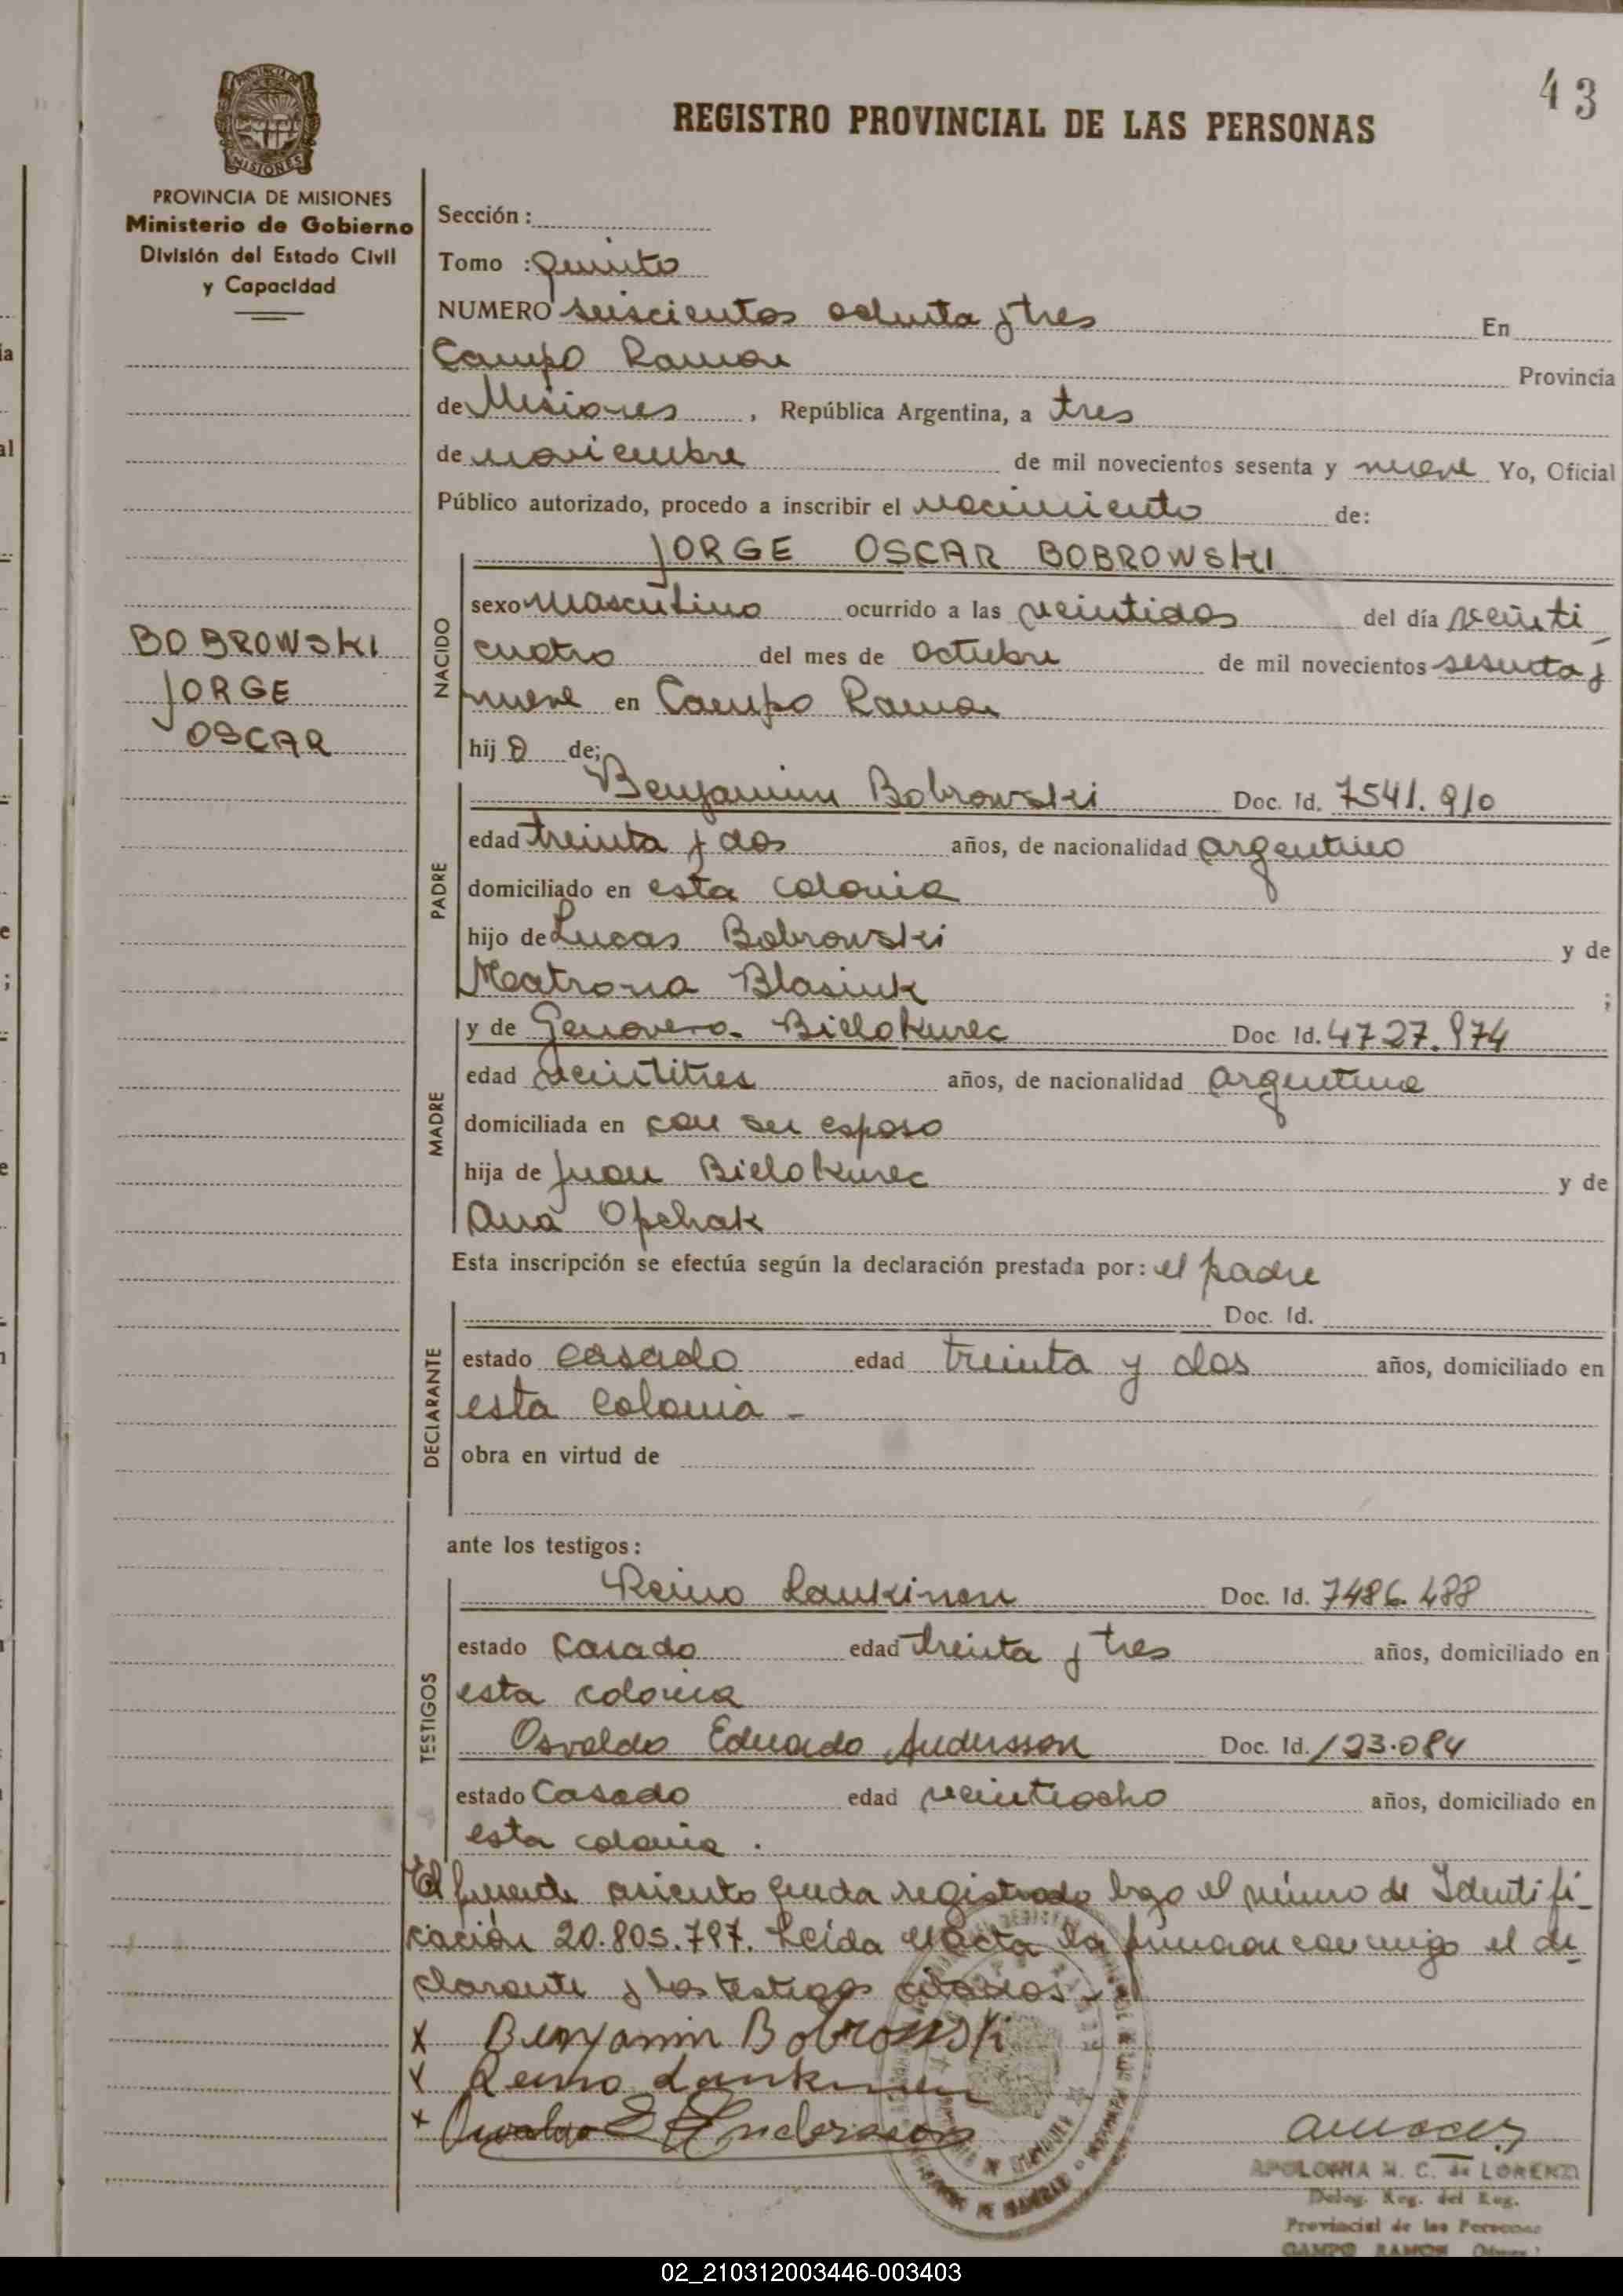 43
REGISTRO PROVINCIAL DE LAS PERSONAS
PROVINCIA DE MISIONES
Ministerio de Gobierno
División del Estado Civil
y Capacidad
Sección :
Tomo : Quinto
NUMERO seiscientos ochenta y tres En
Campo Ramon Provincia
de Misiones , República Argentina, a tres
de noviembre de mil novecientos sesenta y nueve Yo, Oficial
Público autorizado, procedo a inscribir el nacimiento de:
JORGE OSCAR BOBROWSKI
BOBROWSKI
JORGE
OSCAR
NACIDO
sexo Masculino ocurrido a las veintidos del día veinti
cuatro del mes de octubre de mil novecientos sesenta y
nueve en Campo Ramon
hij o de;
PADRE
Benjamin Bobrowski Doc. Id. 7541.910
edad treinta y dos años, de nacionalidad argentino
domiciliado en esta colonia
hijo de Lucas Bobrowski y de
Matrona Blasiuk ;
MADRE
y de Genovera Bielokurec Doc Id. 4727.974
edad veintitres años, de nacionalidad argentina
domiciliada en con su esposo
hija de Juan Bielokurec y de
Ana Opchak
Esta inscripción se efectúa según la declaración prestada por: el padre
DECLARANTE
Doc. Id.
estado casado edad treinta y dos años, domiciliado en
esta colonia -
obra en virtud de
ante los testigos :
TESTIGOS
Reino Laukinen Doc. Id. 7486.488
estado casado edad treinta y tres años, domiciliado en
esta colonia
Osvaldo Eduardo Andersson Doc. Id. 123.084
estado Casado edad veintiocho años, domiciliado en
esta colonia .
El presente asiento queda registrado bajo el número de Identifi-
cación 20.805.797. Leída el acta la firman con migo el de-
clarante y los testigos citados.-
x Benjamin Bobrowski
x Reino Laukinen
x Osvaldo E Andersson
APOLONIA M. C. de LORENZI
Deleg. Reg. del Reg.
Provincial de las Personas
CAMPO RAMON
02_210312003446-003403